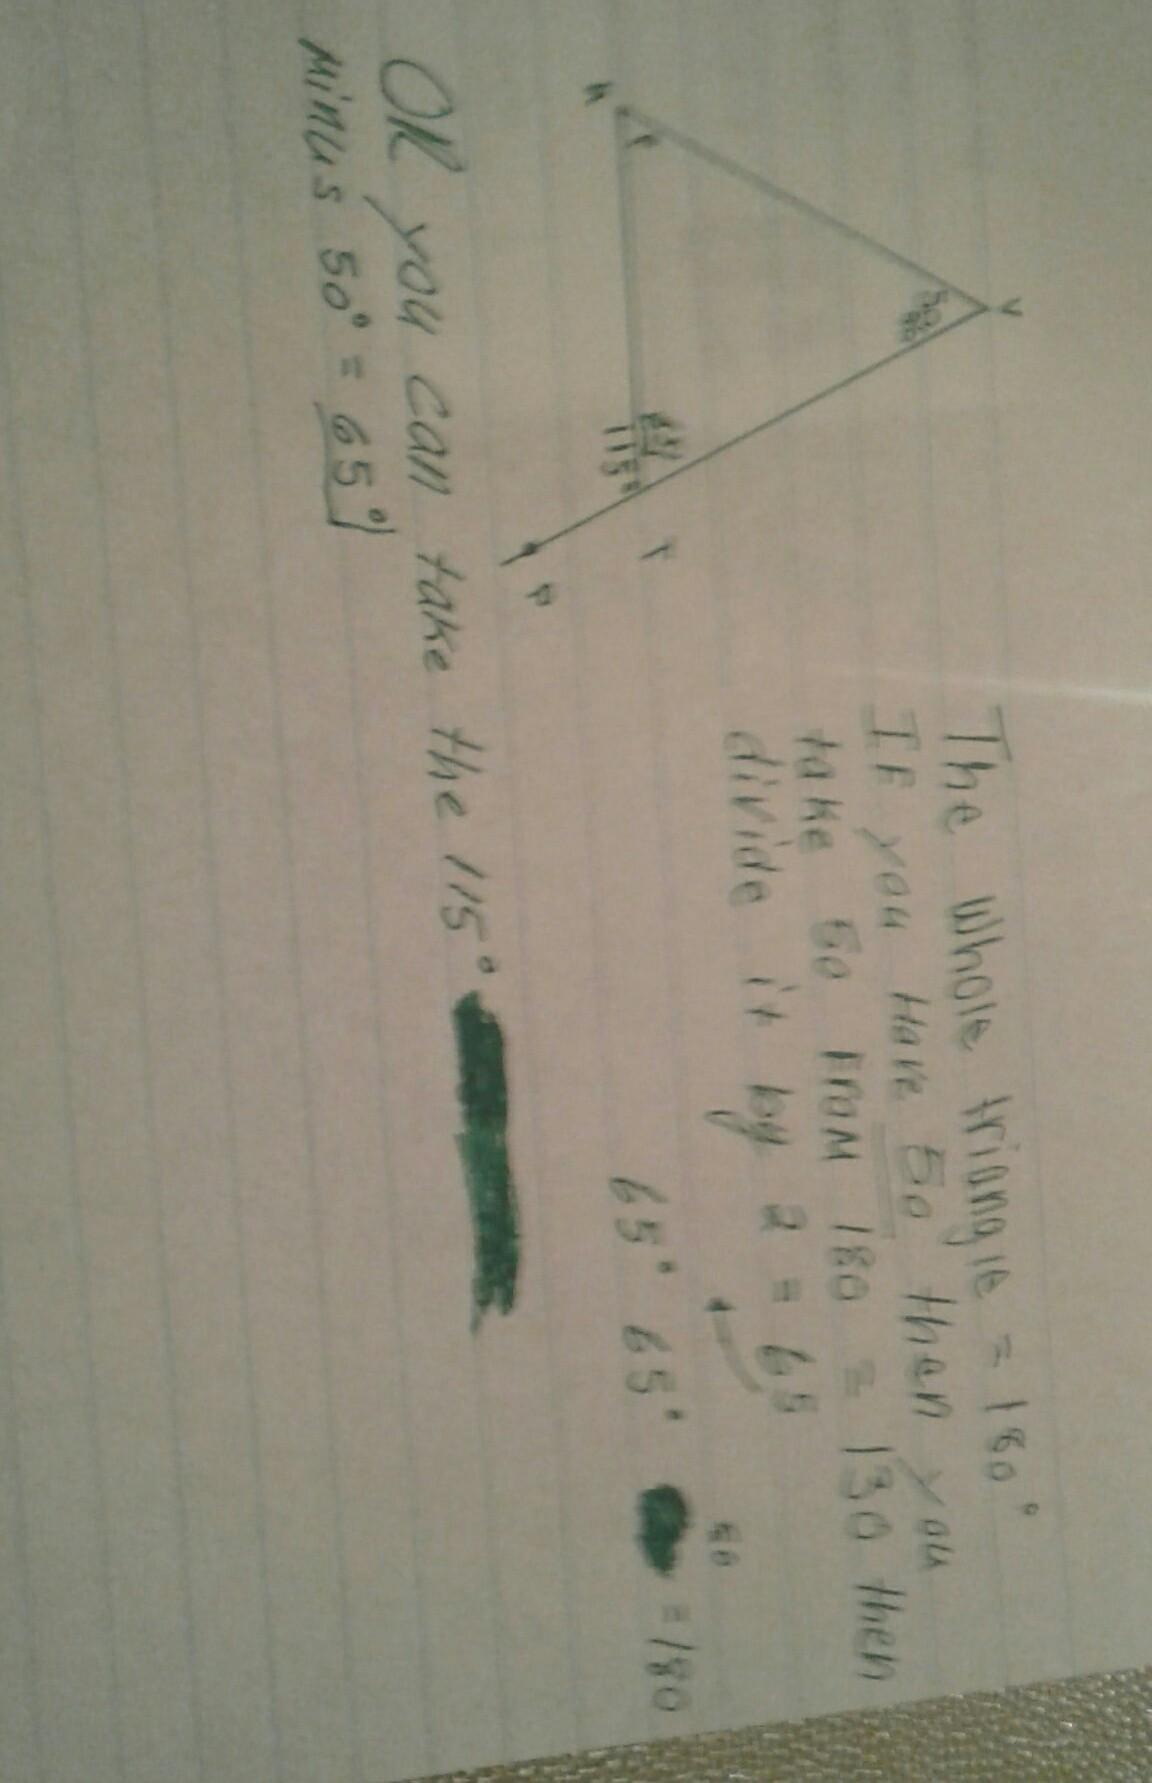 The whole triangle = 180°
IF you Have 50 then you
take 50 From 180 = 130 then
divide it by 2 = 65
65° 65° 50 = 180
V
50°
115°
T
P
OR you can take the 115°
Minus 50° = 65°